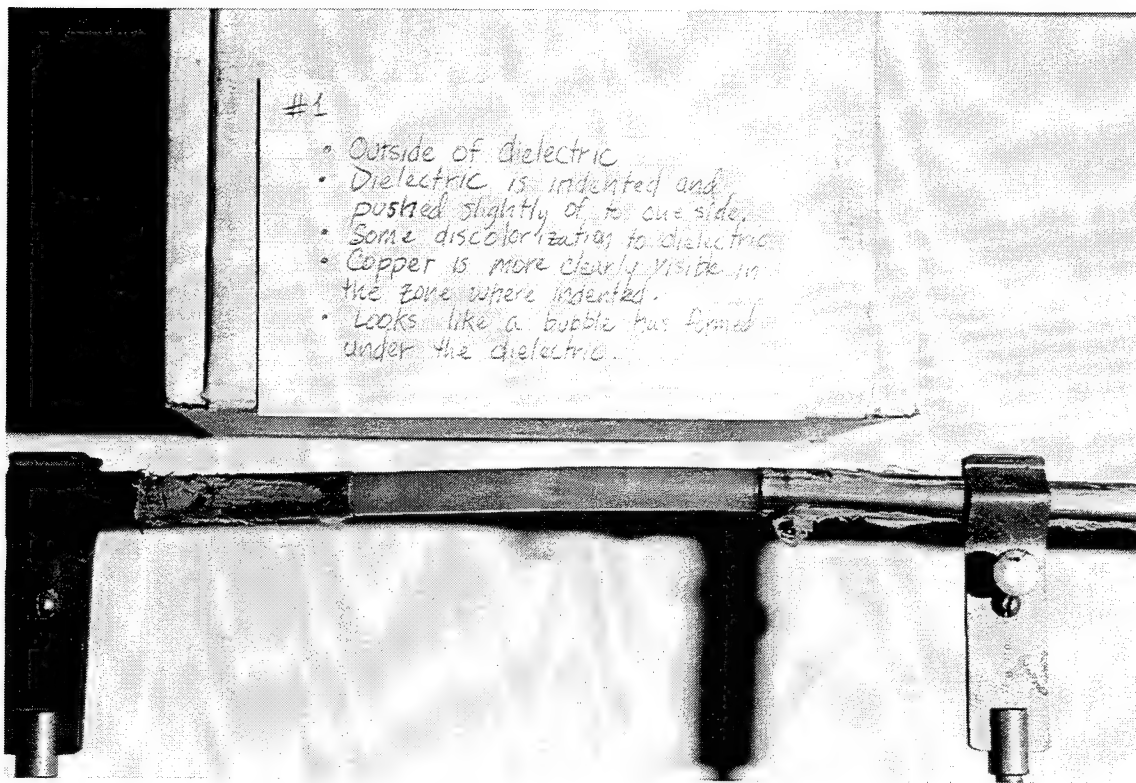 #1
• Outside of dielectric
• Dielectric is indented and
pushed slightly of to one side.
• Some discolorization to dielectric
• Copper is more clearly visible in
the zone where indented.
• Looks like a bubble has formed
under the dielectric.